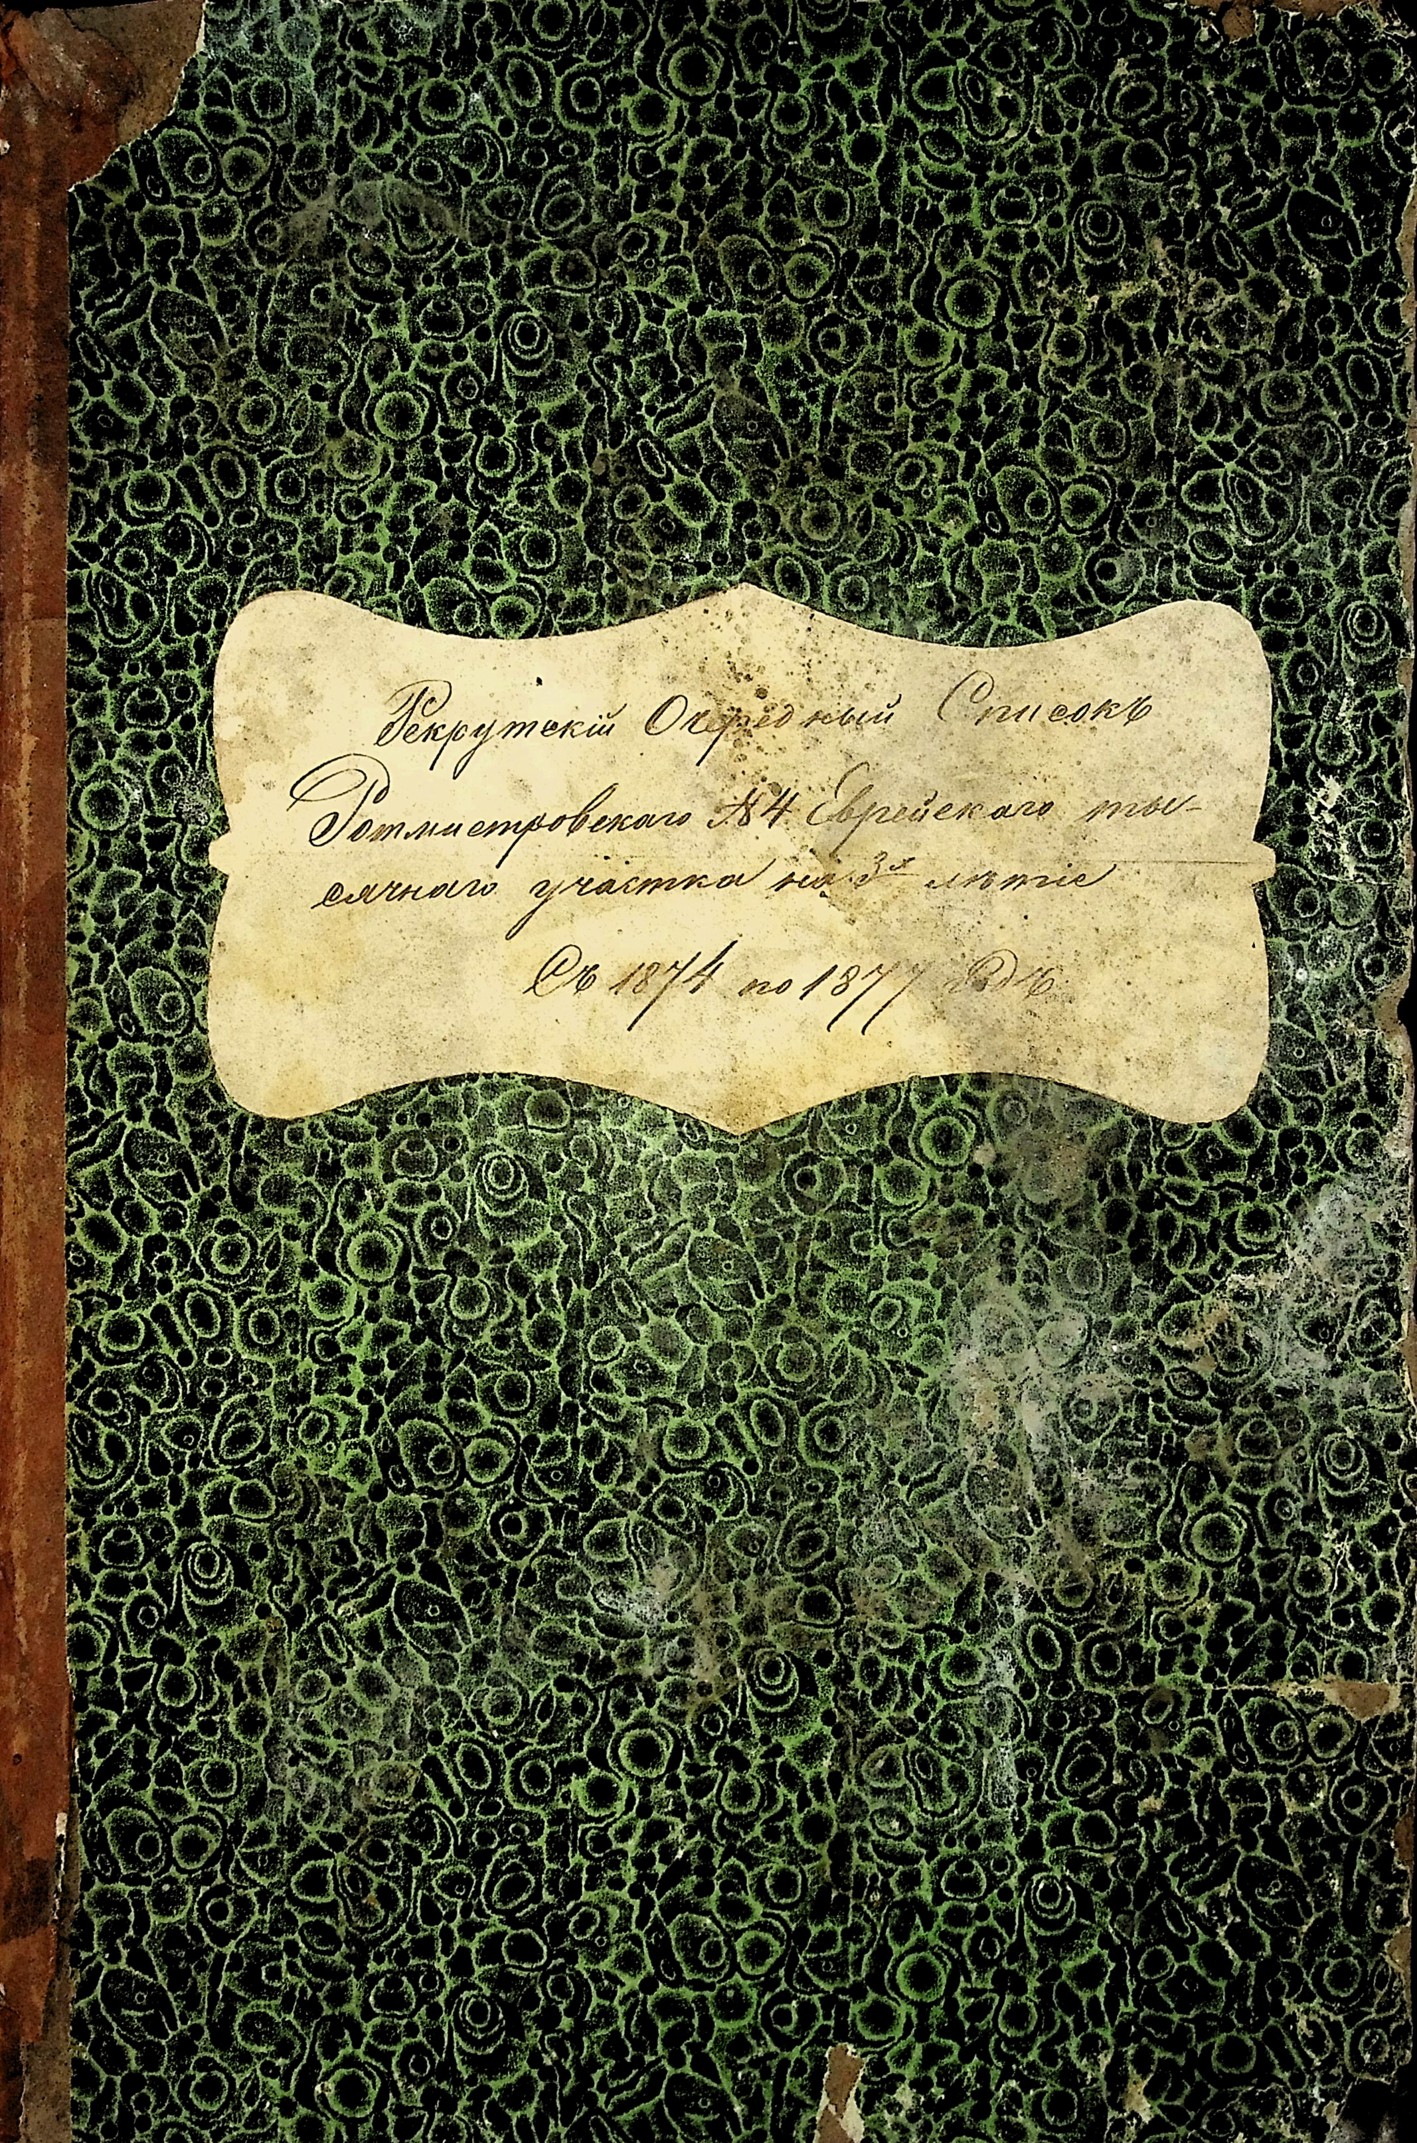 Рекрутскій Очередный Списокъ
Ротмистровскаго №4 Еврейскаго ты-
сячнаго участка на 3х лѣтіе
Съ 1874 по 1877 годъ